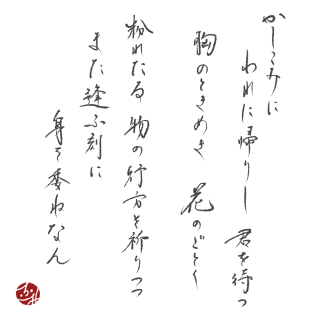 かしこみに
われに帰りし 君を待つ
胸のときめき 花のごとく
粉れたる 物の行方を祈りつつ
また逢ふ刻に
身を委ねなん